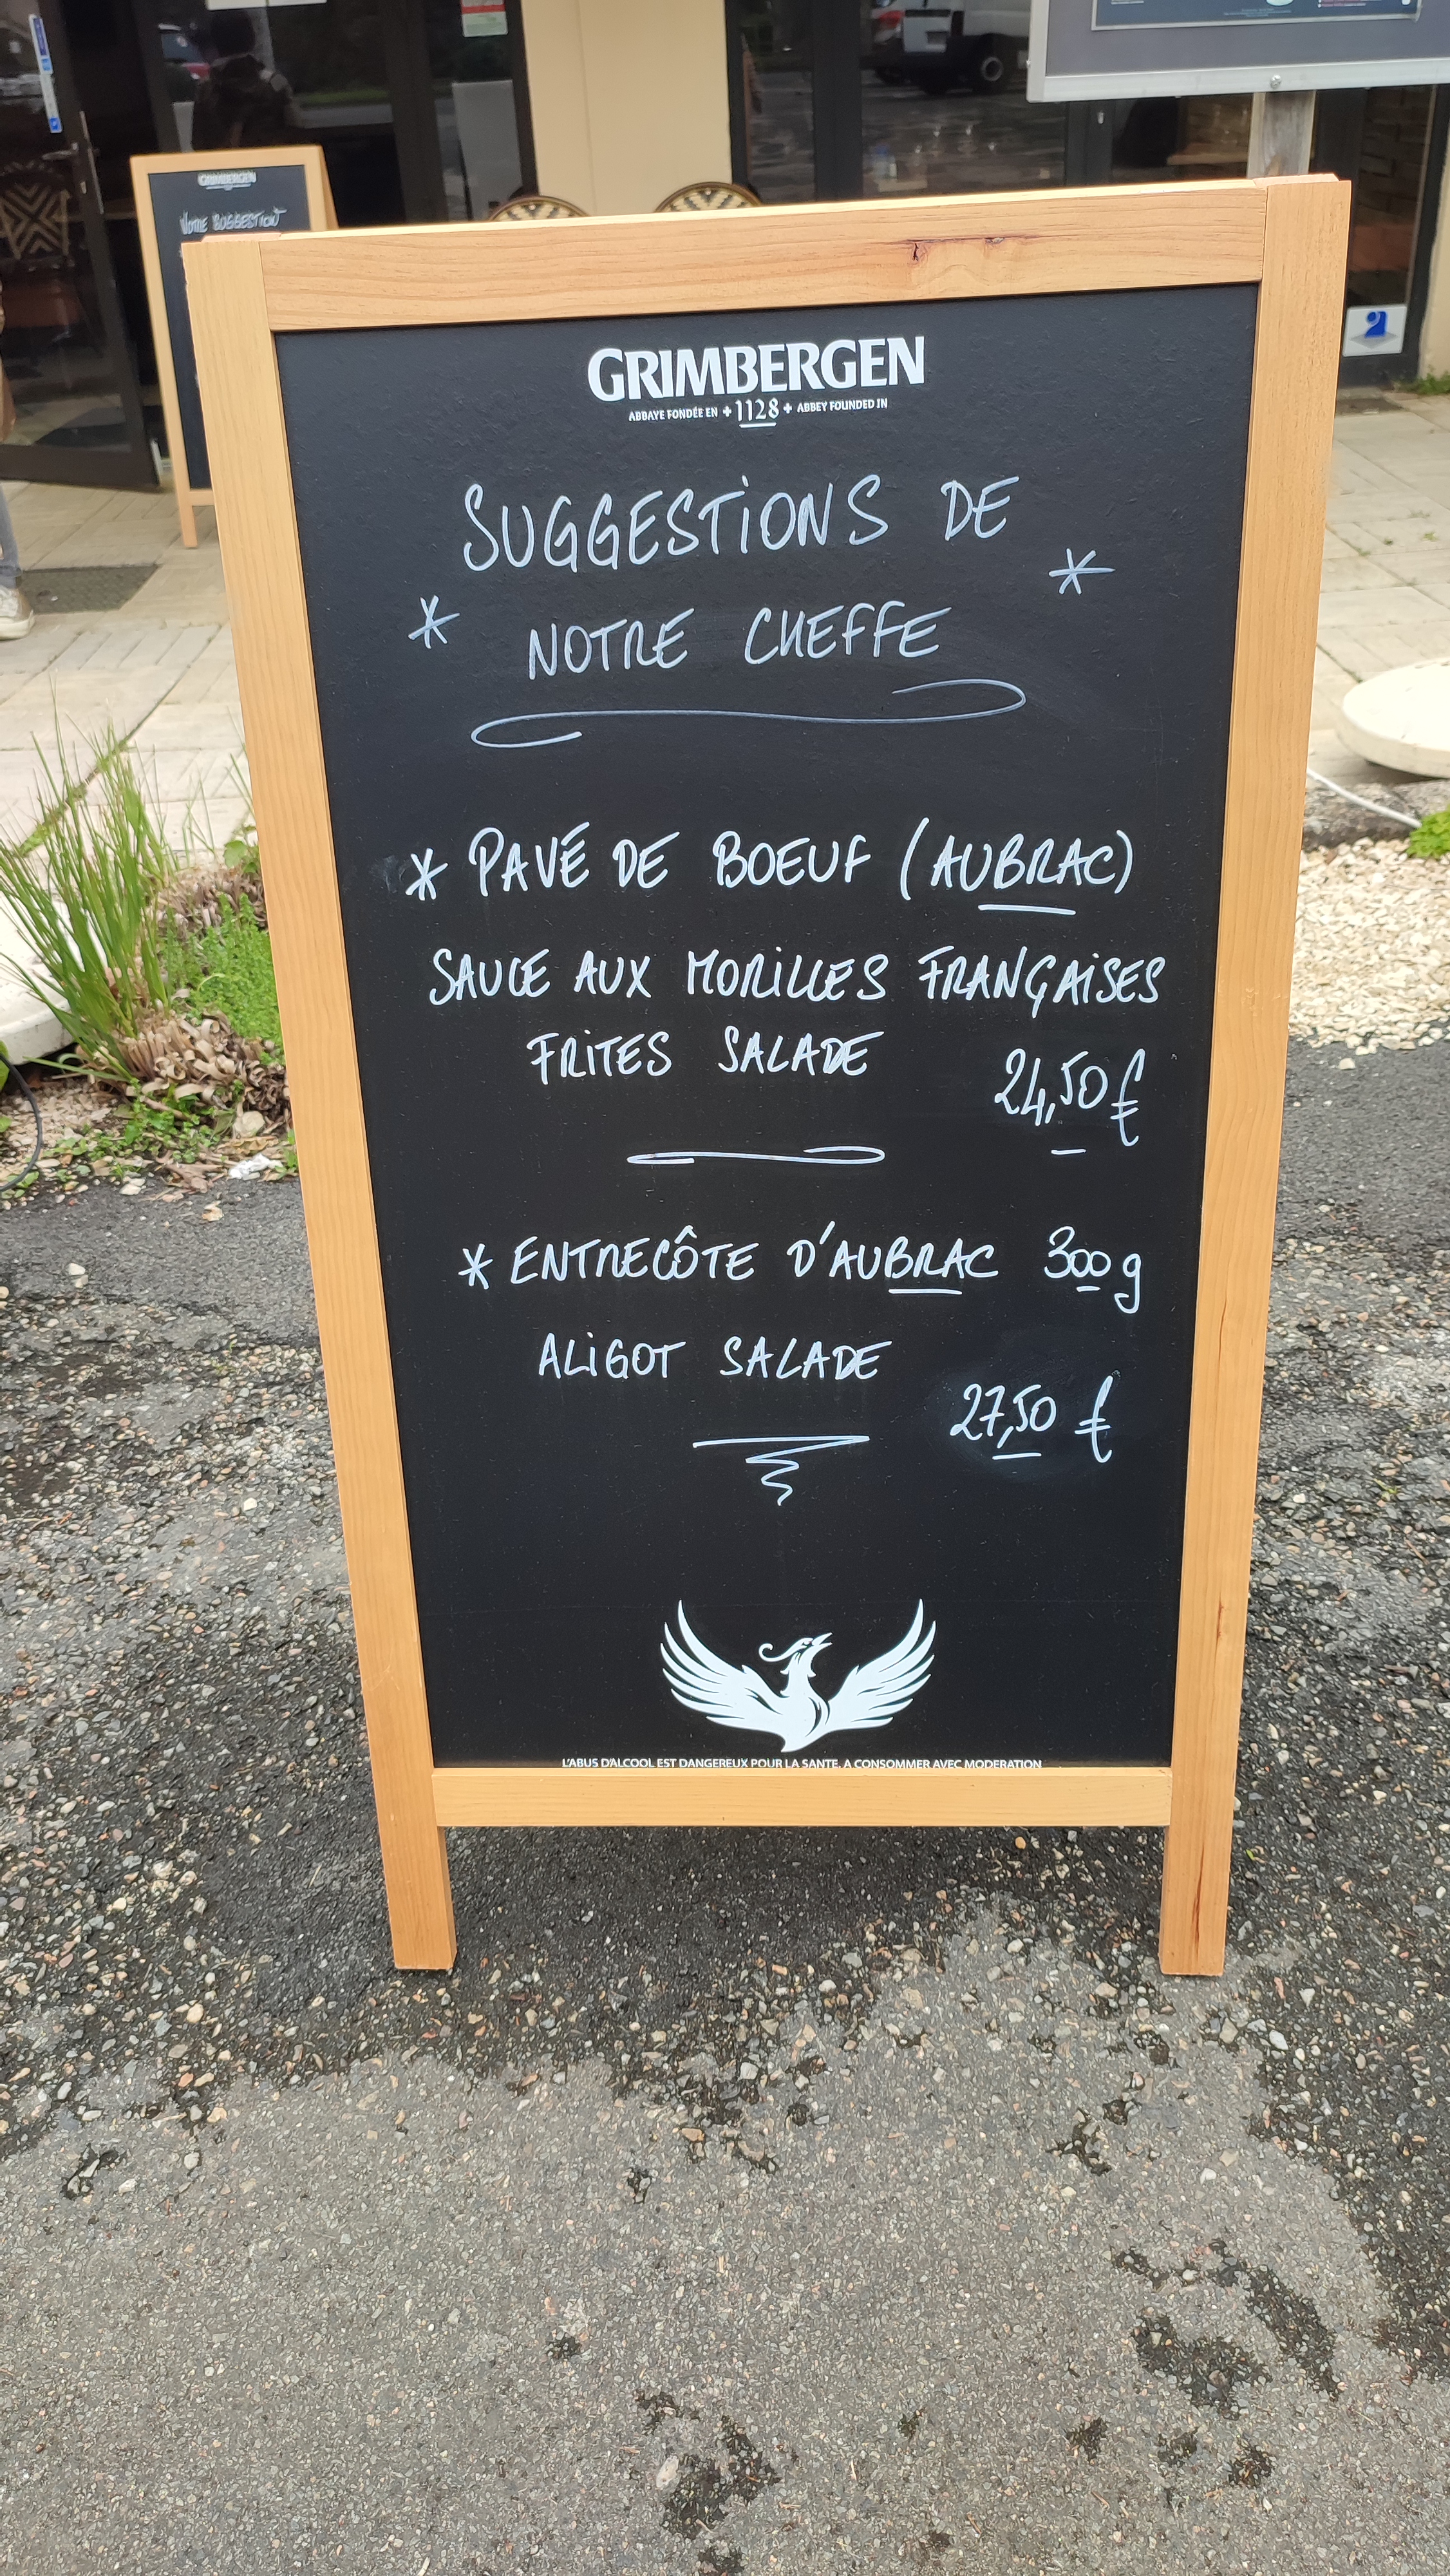 GRIMBERGEN
NOTRE SUGGESTION
GRIMBERGEN
ABBAYE FONDÉE EN +1128+ ABBEY FOUNDED IN
SUGGESTIONS DE
* NOTRE CHEFFE *
* PAVÉ DE BOEUF (AUBRAC)
SAUCE AUX MORILLES FRANÇAISES
FRITES SALADE 24,50 €
* ENTRECÔTE D'AUBRAC 300g
ALIGOT SALADE
27,50 €
L'ABUS D'ALCOOL EST DANGEREUX POUR LA SANTE. A CONSOMMER AVEC MODERATION